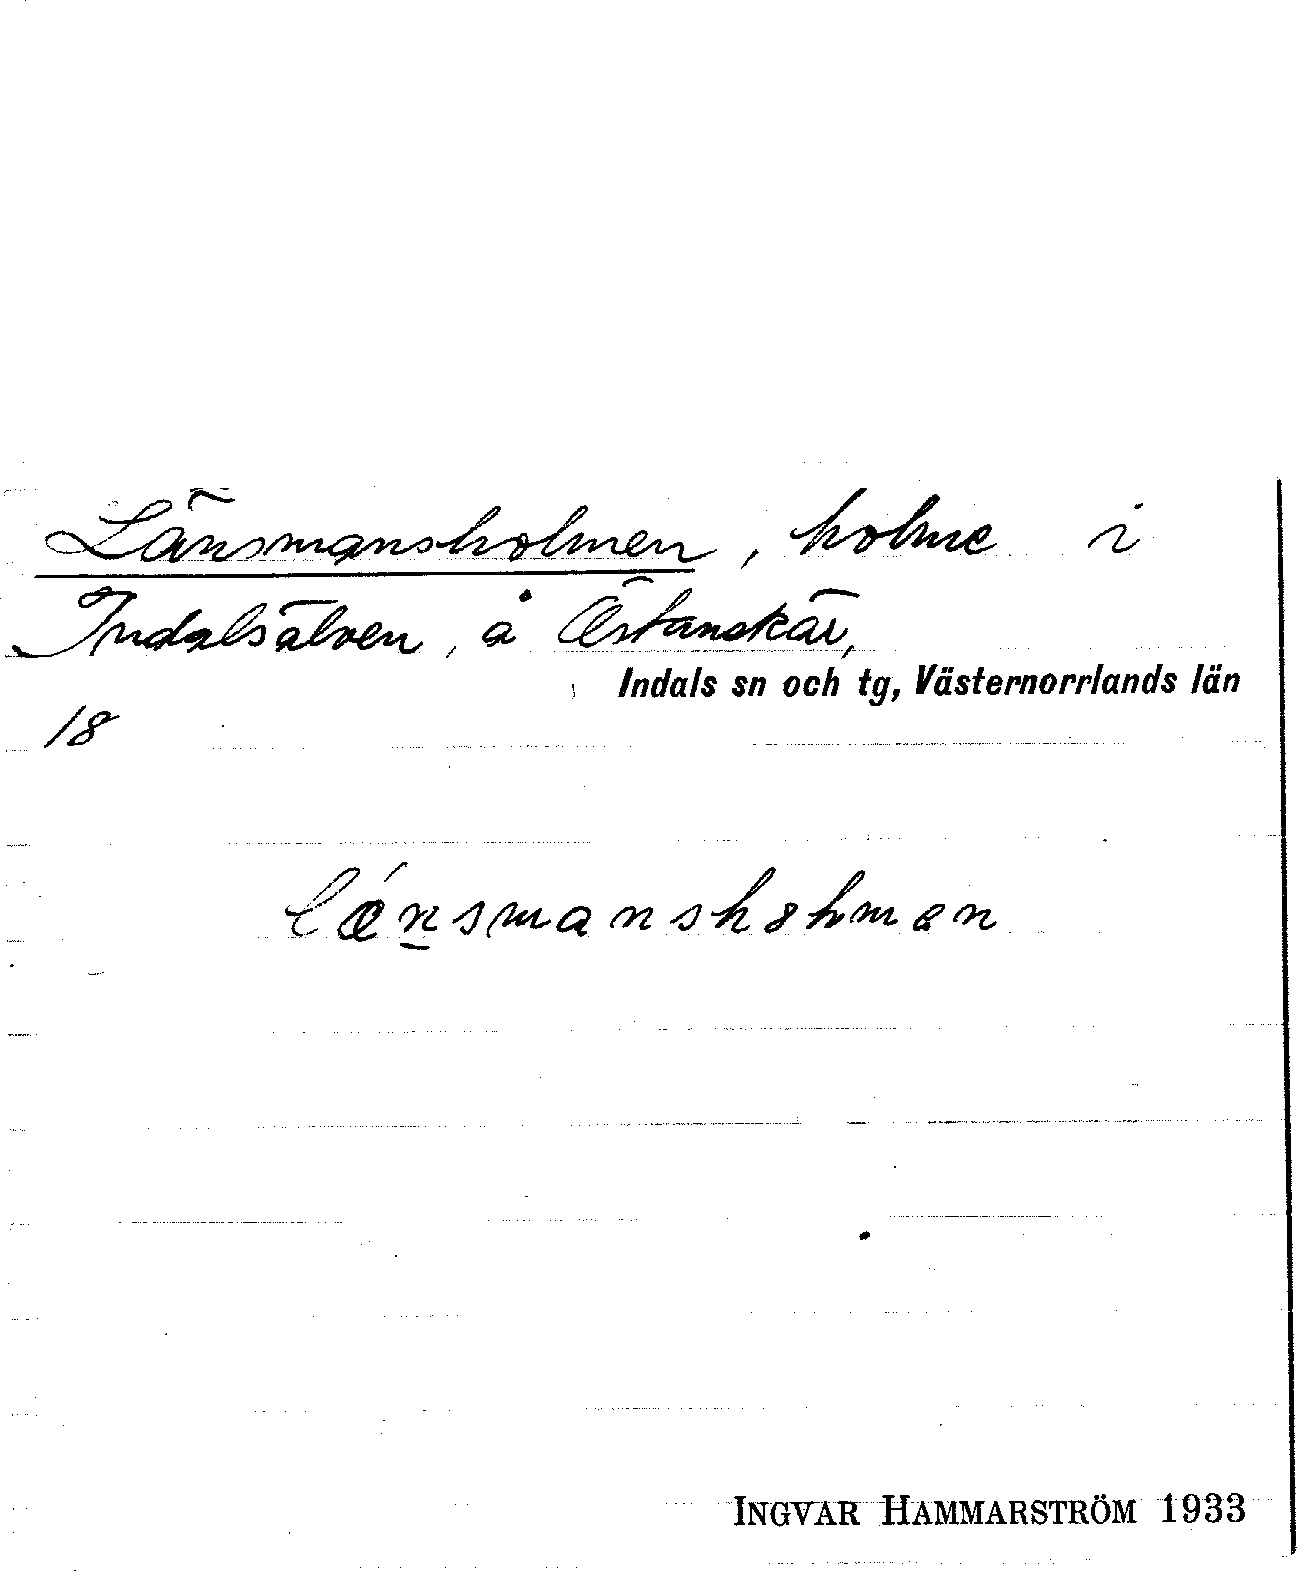 Länsmansholmen, holme i
Indalsälven, å Östanskär,
Indals sn och tg, Västernorrlands län
18
INGVAR HAMMARSTRÖM 1933